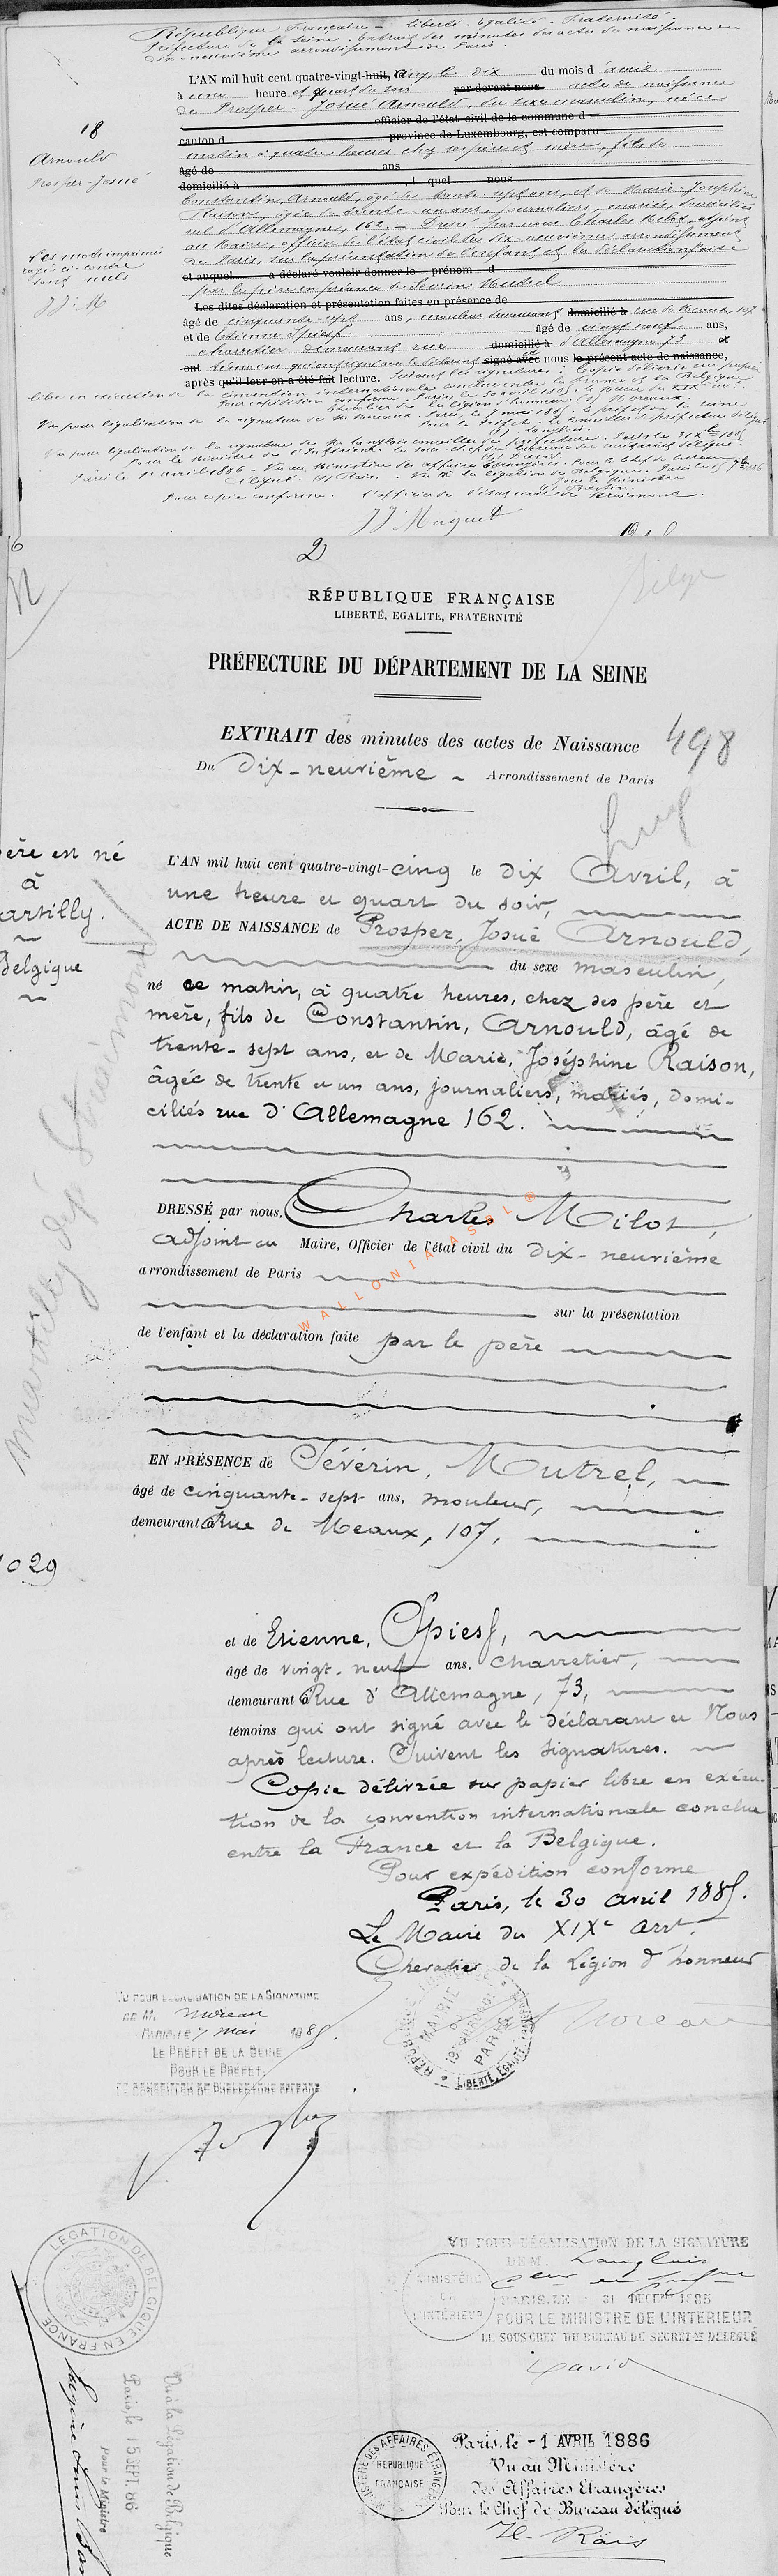 République Française – Liberté – Egalité – Fraternité
Préfecture de la Seine. Extrait des minutes des actes de naissance du
dix-neuvième arrondissement de Paris.
L'AN mil huit cent quatre-vingt-huit, cinq, le dix du mois d'avril
à une heure et quart du soir par devant nous acte de naissance
de Prosper-Josué Arnould, du sexe masculin, né ce
officier de l'état civil de la commune d
18
canton d province de Luxembourg, est comparu
matin à quatre heures chez ses père et mère, fils de
Arnould
Prosper-Josué
âgé de ans
domicilié à , l quel nous
Constantin, Arnould, âgé de trente-sept ans, et de Marie-Joséphine
Raison, âgée de trente-un ans, journaliers, mariés, domiciliés
rue d'Allemagne, 162. – Dressé par nous Charles Milot, adjoint
au Maire, officier de l'état civil du dix neuvième arrondissement
de Paris, sur la présentation de l'enfant et la déclaration faite
Les mots imprimés
rayés ci-contre
sont nuls
J J M
et auquel a déclaré vouloir donner le prénom d
par le père en présence de Séverin Mutrel
Les dites déclaration et présentation faites en présence de
âgé de cinquante-sept ans, mouleur demeurant domicilié à rue de Meaux, 107
et de Etienne Spiesf âgé de vingt neuf ans,
charretier demeurant rue domicilié à d'Allemagne 73 et
ont témoins qui ont signé avec le déclarant signé avec nous le présent acte de naissance,
après qu'il leur en a été fait lecture. Suivent les signatures. Copie délivrée sur papier
libre en exécution de la convention internationale conclue entre la France et la Belgique
Pour expédition conforme. Paris, le 30 avril 1885. Le Maire du XIXe arr.
Chevalier de la légion d'honneur (s) Moreau.
Vu pour légalisation de la signature de M. Moreau. Paris, le 7 mai 1885. Le préfet de la Seine
Vu pour légalisation de la signature de M. Langlois conseiller de préfecture. Paris le 31 Xbre 1885
Pour le ministre de l'Intérieur. Le sous-chef du bureau du secrétariat délégué.
(s) David
Paris le 1 avril 1886 – Vu au Ministère des affaires Etrangères. Pour le chef de bureau
délégué. Vu à la légation de Belgique. Paris le 15 7bre 1886
Pour le Ministre
Pour copie conforme. L'officier de l'état civil de
J J Maquet
2
Belge
RÉPUBLIQUE FRANÇAISE
LIBERTÉ, EGALITÉ, FRATERNITÉ
PRÉFECTURE DU DÉPARTEMENT DE LA SEINE
EXTRAIT des minutes des actes de Naissance 498
Du Dix-neuvième Arrondissement de Paris
père est né
à
artilly.
Belgique
L'AN mil huit cent quatre-vingt-cinq le dix Avril, à
une heure et quart du soir,
ACTE DE NAISSANCE de Prosper, Josué Arnould,
du sexe masculin,
né ce matin, à quatre heures, chez ses père et
mère, fils de Constantin, Arnould, âgé de
trente-sept ans, et de Marie, Joséphine Raison,
âgée de trente et un ans, journaliers, mariés, domi-
ciliés rue d'Allemagne 162.
DRESSÉ par nous, Charles Milot,
adjoint au Maire, Officier de l'état civil du dix-neuvième
arrondissement de Paris
WALLONIA ASBL ®
sur la présentation
de l'enfant et la déclaration faite par le père
EN PRÉSENCE de Sévérin, Mutrel,
âgé de cinquante-sept ans, mouleur,
demeurant à Rue de Meaux, 107,
1029
et de Etienne, Spiesf,
âgé de vingt-neuf ans, charretier,
demeurant à Rue d'Allemagne, 73,
témoins qui ont signé avec le déclarant et Nous
après lecture. Suivent les signatures.
Copie délivrée sur papier libre en exécu-
tion de la convention internationale conclue
entre la France et la Belgique.
Pour expédition conforme
Paris, le 30 avril 1885.
Le Maire du XIXe arrt.
Chevalier de la Légion d'honneur
VU POUR LÉGALISATION DE LA SIGNATURE
DE M. Moreau
PARIS, LE 7 mai 1885.
LE PRÉFET DE LA SEINE
POUR LE PRÉFET,
LE CONSEILLER DE PRÉFECTURE DÉLÉGUÉ
MAIRIE DU 19e ARRONDt PARIS
LIBERTÉ, EGALITÉ, FRATERNITÉ
Moreau
LÉGATION DE BELGIQUE EN FRANCE
VU POUR LÉGALISATION DE LA SIGNATURE
DE M. Langlois
MINISTÈRE DE L'INTÉRIEUR
PARIS, LE 31 DÉCEM 1885
POUR LE MINISTRE DE L'INTERIEUR
LE SOUS CHEF DU BUREAU DU SECRETAT DELEGUÉ
David
Vu à la Légation de Belgique
Paris, le 15 SEPT. 86
Pour le Ministre
MINISTÈRE DES AFFAIRES ETRANGÈRES
RÉPUBLIQUE FRANÇAISE
Paris, le -1 AVRIL 1886
Vu au Ministère
des Affaires Etrangères
Pour le Chef de Bureau délégué